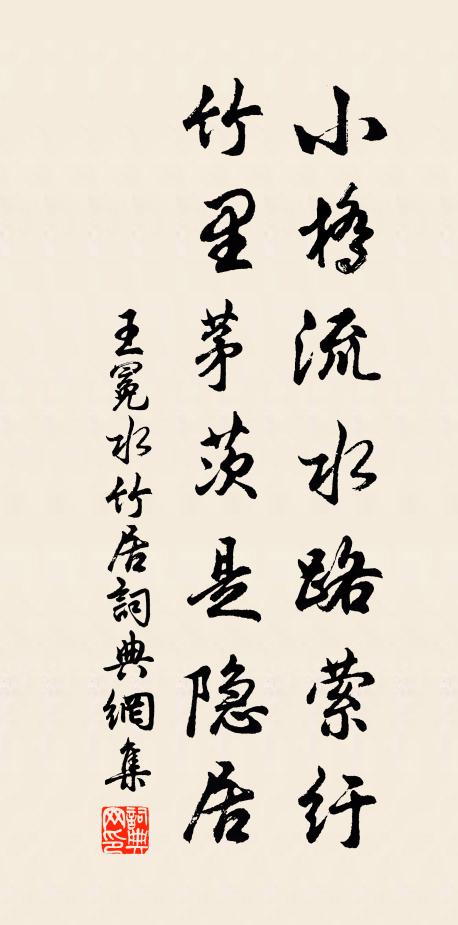 小橋流水路萦纡
竹里茅茨是隐居
王冕水竹居詞典網集
詞典网印